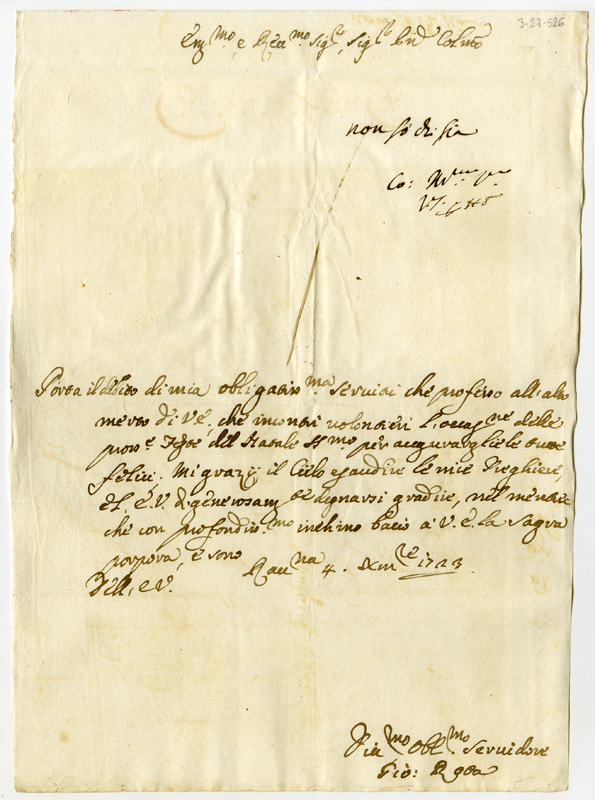 3-27-526
Em:mo, e Reu:mo Sig:re, Sig:re
non so chi sia
Co:
Porta il debito di mia obligatiss:ma seruitù che professo all'alto
merto di V.E. che incontri volontieri l'occas:ne delle
pross:e Feste del Natale SS:mo per augurargliele tutte
felici. Mi grazij il Cielo esaudire le mie Preghiere,
et l'E.V. di generosam:te degnarsi gradire, nel mentre
che con profondiss:mo inchino bacio a V.E. la Sagra
porpora, e sono
Dell'E.V.
Rau:na 4. Xm:re 1723.
Obl:mo Seruidore
Gio: